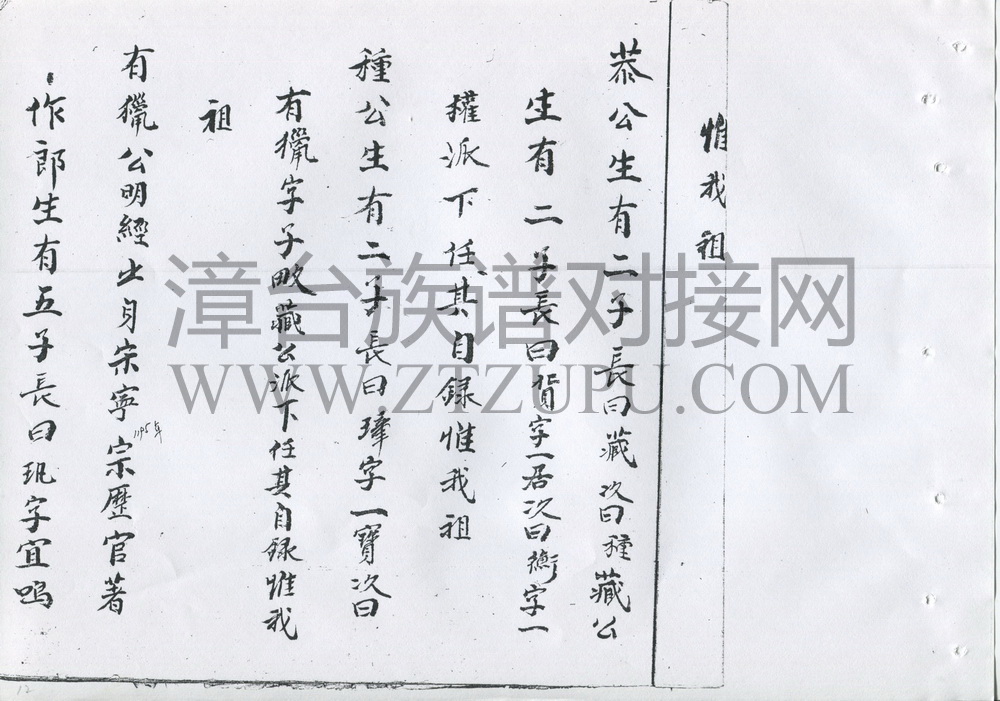 惟我祖
恭公生有二子長曰藏次曰種藏公
生有二子長曰貲字一居次曰衡字一
權派下任其自録惟我祖
種公生有二子長曰璋字一寶次曰
有獵字子畋藏公派下任其自録惟我
祖
有獵公明經出身宋寧宗歷官著
1195年
作郎生有五子長曰玑字宜鳴
漳台族谱对接网
WWW.ZTZUPU.COM
12